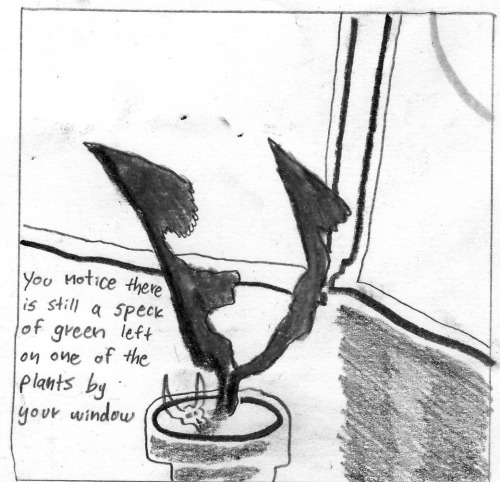 You notice there
is still a speck
of green left
on one of the
plants by
your window